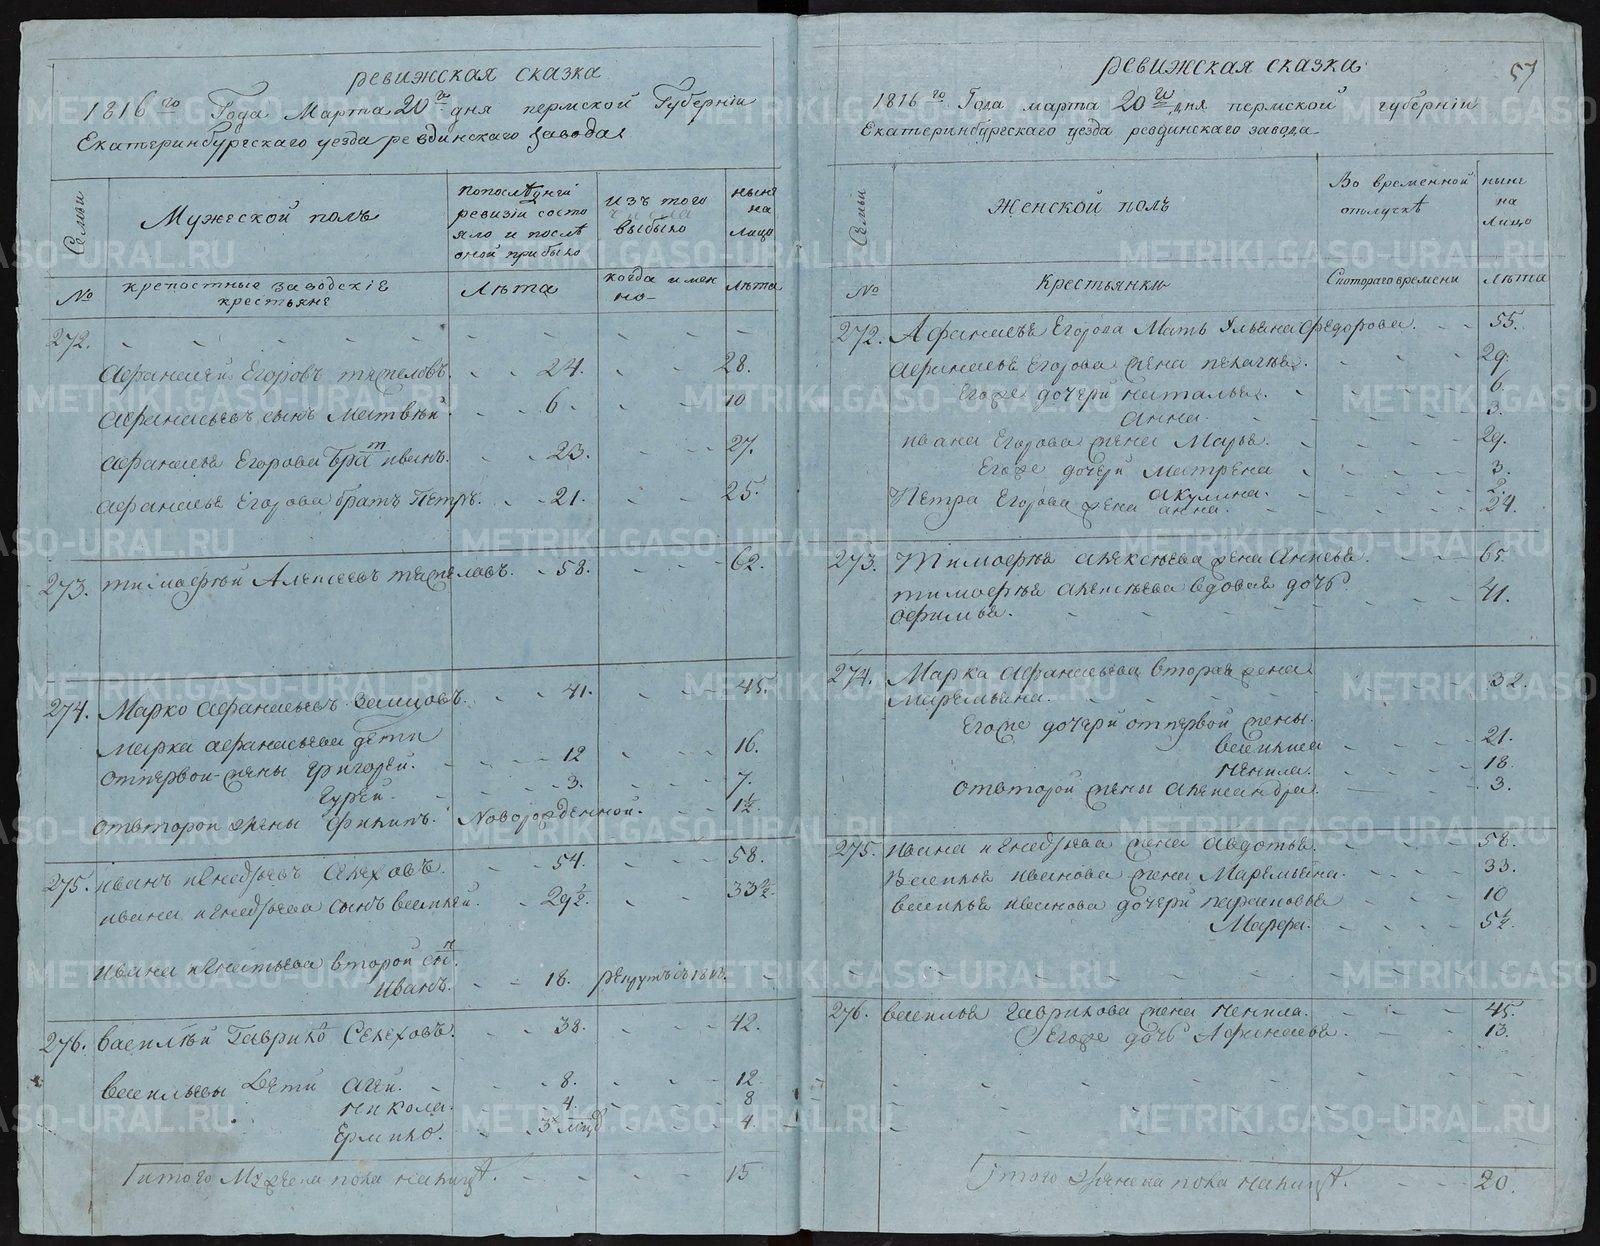 ревижская сказка
1816го Года Марта 20го дня пермской Губерніи
Екатеринбургскаго уезда ревдинскаго завода
Семьи
Мужеской полъ
попослѣдней ревизіи состояло и послѣ оной прибыло
изъ того числа выбыло
ныне на лицо
№
крепостные заводскіе крестьяне
Лѣта
когда имянно
лѣта
272.
Афанасей Егоровъ 24. 28.
Афанасьевъ сынъ Матвѣй. 6. 10
Афанасья Егорова брат иванъ. 23. 27.
Афанасья Егорова братъ Петръ. 21. 25.
273. тимофѣй Алексеевъ 58. 62.
274. Марко Афанасьевъ 41. 45.
Марка афанасьева дети
отпервой жены григорей. 12 16.
Гурей. 3. 7.
отвторой жены Филипъ. Новорожденной. 1½.
275. иванъ игнатьевъ 54. 58.
ивана игнатьева сынъ василей. 29½. 33½.
ивана игнатьева второй сын
иванъ. 18. рекрутъ съ
276. василей Гаврило 38. 42.
васильевы дети агей. 8. 12
никола. 4. 8
Ермило. 4
итого Мужеска пола налицо. 15
ревижская сказка
57
1816го Года марта 20го дня пермской губерніи
Екатеринбургскаго уезда ревдинскаго завода
Семьи
Женской полъ
Во временной отлучкѣ
ныне на лицо
№
Крестьянки
Скотораго времени
лѣта
272. Афанасья Егорова Мать Ульяна федорова. 55.
Афанасья Егорова жена пелагѣя. 29.
Егоже дочери наталья. 6.
Анна. 3.
ивана Егорова жена Марья. 29.
Егоже дочери матрена 3.
акулина. 2.
Петра Егорова жена анна. 24.
273. Тимофѣя алексѣева жена 65.
тимофѣя алексѣева вдовая дочь 41.
афимья.
274. Марка афанасьева вторая жена
маремьяна. 32.
Егоже дочери отпервой жены.
василиса 21.
ненила. 18.
отвторой жены александра. 3.
275. ивана игнатьева жена авдотья. 58.
Василья иванова жена Маремьяна. 33.
василья иванова дочери парасковья 10
Марфа. 5½.
276. василья гаврилова жена ненила. 45.
Егоже дочь Афанасья. 13.
Итого женска пола налицо. 20.
METRIKI.GASO-URAL.RU